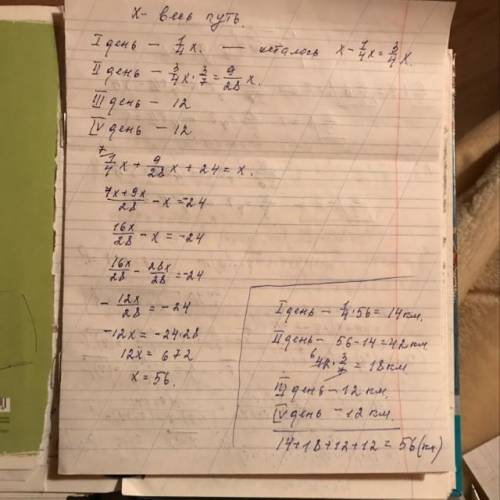 x - весь путь.
I день - 1/4 x. — осталось x - 1/4x = 3/4 x.
II день - 3/4x · 3/7 = 9/28 x.
III день - 12
IV день - 12
7 1/4 x + 9/28 x + 24 = x.
7x+9x/28 - x = -24
16x/28 - x = -24
16x/28 - 28x/28 = -24
- 12x/28 = -24
-12x = -24·28
12x = 672
x = 56.
I день - 1/4 · 56 = 14 км.
II день - 56-14 = 42 км
6 42 · 3/7 = 18 км
III день - 12 км.
IV день - 12 км.
14+18+12+12 = 56 (км)